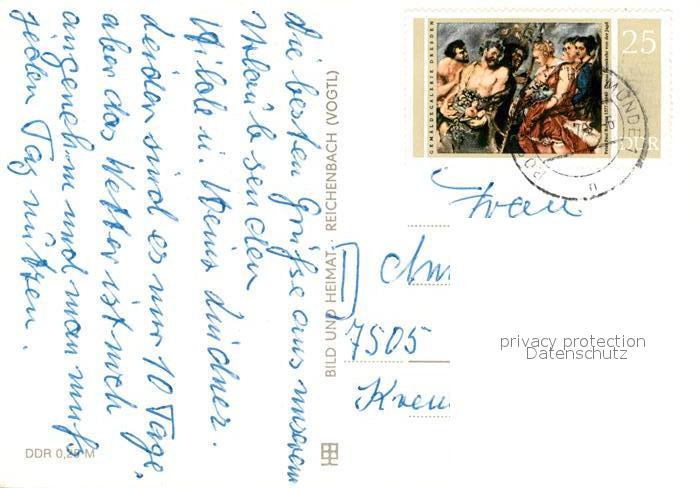 die besten Grüße aus unserem
Urlaub senden
Hilde u. Heinz Lindner.
Leider sind es nur 10 Tage,
aber das Wetter ist noch
angenehm und man muß
jeden Tag nützen.
BILD UND HEIMAT · REICHENBACH (VOGTL)
DDR 0,25 M
GEMÄLDEGALERIE DRESDEN
Peter Paul Rubens
von der Jagd
25
DDR
Frau
7505
privacy protection
Datenschutz